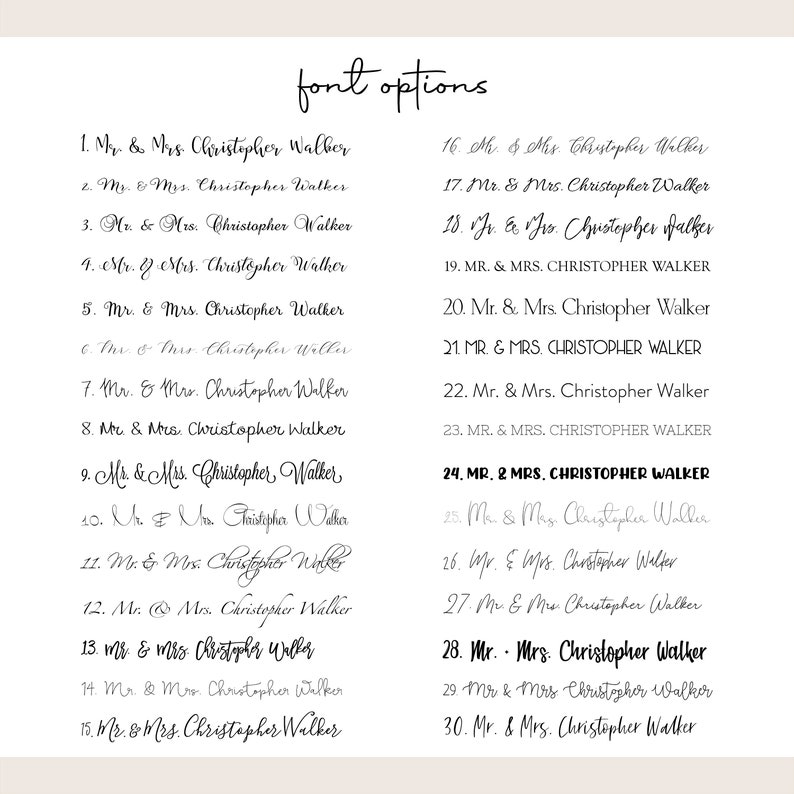 font options
1. Mr. & Mrs. Christopher Walker
2. Mr. & Mrs. Christopher Walker
3. Mr. & Mrs. Christopher Walker
4. Mr. & Mrs. Christopher Walker
5. Mr. & Mrs. Christopher Walker
6. Mr. & Mrs. Christopher Walker
7. Mr. & Mrs. Christopher Walker
8. Mr. & Mrs. Christopher Walker
9. Mr. & Mrs. Christopher Walker
10. Mr. & Mrs. Christopher Walker
11. Mr. & Mrs. Christopher Walker
12. Mr. & Mrs. Christopher Walker
13. Mr. & Mrs. Christopher Walker
14. Mr. & Mrs. Christopher Walker
15. Mr. & Mrs. Christopher Walker
16. Mr. & Mrs. Christopher Walker
17. Mr. & Mrs. Christopher Walker
18. Mr. & Mrs. Christopher Walker
19. MR. & MRS. CHRISTOPHER WALKER
20. Mr. & Mrs. Christopher Walker
21. MR. & MRS. CHRISTOPHER WALKER
22. Mr. & Mrs. Christopher Walker
23. MR. & MRS. CHRISTOPHER WALKER
24. MR. & MRS. CHRISTOPHER WALKER
25. Mr. & Mrs. Christopher Walker
26. Mr. & Mrs. Christopher Walker
27. Mr. & Mrs. Christopher Walker
28. Mr. + Mrs. Christopher Walker
29. Mr & Mrs Christopher Walker
30. Mr. & Mrs. Christopher Walker